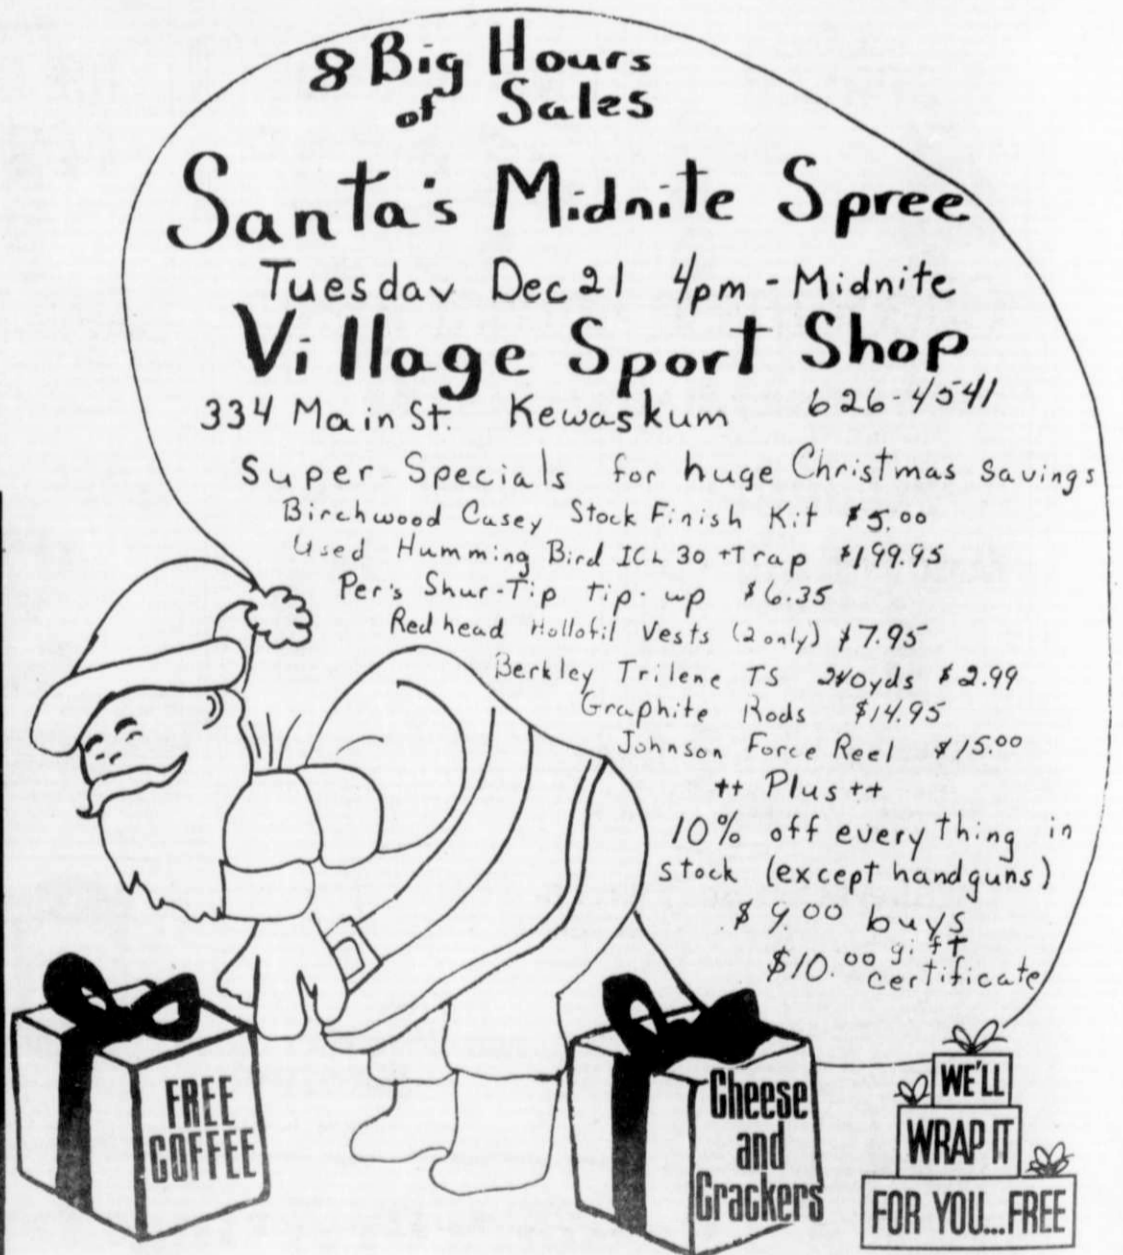 8 Big Hours
of Sales
Santa's Midnite Spree
Tuesday Dec 21 4pm - Midnite
Village Sport Shop
334 Main St. Kewaskum 626-4541
Super-Specials for huge Christmas savings
Birchwood Casey Stock Finish Kit $5.00
Used Humming Bird ICL 30 ++Trap $199.95
Per's Shur-Tip tip-up $6.35
Redhead Hollofil Vests (2 only) $7.95
Berkley Trilene TS 240yds $2.99
Graphite Rods $14.95
Johnson Force Reel $15.00
++ Plus ++
10% off everything in
stock (except handguns)
$9.00 buys
$10.00 gift
certificate
FREE
COFFEE
Cheese
and
Crackers
WE'LL
WRAP IT
FOR YOU...FREE